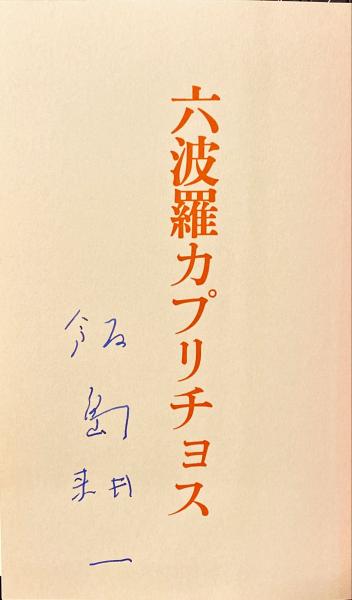 六波羅カプリチョス
飯島耕一